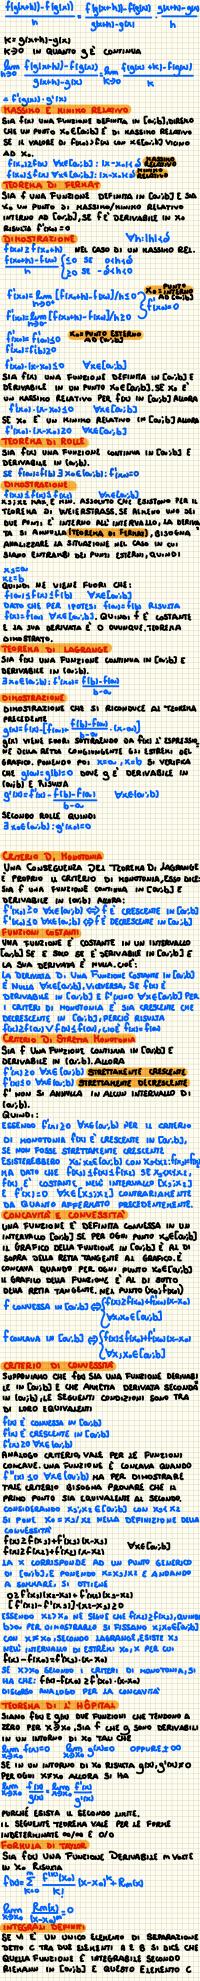 f(g(x+h))-f(g(x))/h = f(g(x+h))-f(g(x))/g(x+h)-g(x) · g(x+h)-g(x)/h
K=g(x+h)-g(x)
K→0 IN QUANTO g È CONTINUA
lim h→0 f(g(x+h))-f(g(x))/g(x+h)-g(x) = lim k→0 f(g(x)+K)-f(g(x))/K
= f'(g(x))·g'(x)
MASSIMO E MINIMO RELATIVO
SIA f(x) UNA FUNZIONE DEFINITA IN [a;b], DIREMO
CHE UN PUNTO x₀∈[a;b] È DI MASSIMO RELATIVO
SE IL VALORE DI f(x₀)≥f(x) CON x∈[a;b] VICINO
AD x₀.
f(x₀)≥f(x) ∀x∈[a;b]: |x-x₀|<δ MASSIMO RELATIVO
f(x₀)≤f(x) ∀x∈[a;b]: |x-x₀|<δ MINIMO RELATIVO
TEOREMA DI FERMAT
SIA f UNA FUNZIONE DEFINITA IN [a;b] E SIA
x₀ UN PUNTO DI MASSIMO/MINIMO RELATIVO
INTERNO AD [a;b], SE f È DERIVABILE IN x₀
RISULTA f'(x₀)=0
DIMOSTRAZIONE ∀h:|h|<δ
f(x₀)≥f(x₀+h) NEL CASO DI UN MASSIMO REL.
f(x₀+h)-f(x₀)/h {≤0 SE 0<h<δ
≥0 SE -δ<h<0
f'(x₀)=lim h→0⁺ [f(x₀+h)-f(x₀)]/h≤0 x₀=PUNTO INTERNO AD [a;b]
f'(x₀)=0
f'(x₀)=lim h→0⁻ [f(x₀+h)-f(x₀)]/h≥0
x₀=PUNTO ESTERNO AD [a;b]
f'(x₀)=f'(a)≤0
f'(x₀)=f'(b)≥0
f'(x₀)·(x-x₀)≤0 ∀x∈[a;b]
SIA f(x) UNA FUNZIONE DEFINITA IN [a;b] E
DERIVABILE IN UN PUNTO x₀∈[a;b]. SE x₀ È
UN MASSIMO RELATIVO PER f IN [a;b] ALLORA
f'(x₀)·(x-x₀)≤0 ∀x∈[a;b]
SE x₀ È UN MINIMO RELATIVO IN [a;b] ALLORA
f'(x₀)·(x-x₀)≥0 ∀x∈[a;b]
TEOREMA DI ROLLE
SIA f(x) UNA FUNZIONE CONTINUA IN [a;b] E
DERIVABILE IN (a;b).
SE f(a)=f(b) ∃x₀∈(a;b): f'(x₀)=0
DIMOSTRAZIONE
f(x₁)≤f(x)≤f(x₂) ∀x∈[a;b]
x₁;x₂ MAX. E MIN. ASSOLUTO CHE ESISTONO PER IL
TEOREMA DI WEIERSTRASS. SE ALMENO UNO DEI
DUE PUNTI È INTERNO ALL'INTERVALLO, LA DERIVA
TA SI ANNULLA (TEOREMA DI FERMAT), BISOGNA
ANALIZZARE LA SITUAZIONE NEL CASO IN CUI
SIANO ENTRAMBI DEI PUNTI ESTERNI, QUINDI
x₁=a
x₂=b
QUINDI NE VIENE FUORI CHE:
f(a)≤f(x)≤f(b) ∀x∈[a;b]
DATO CHE PER IPOTESI f(a)=f(b) RISULTA
f(x)=f(a) ∀x∈[a;b]. QUINDI f È COSTANTE
E LA SUA DERIVATA È 0 OVUNQUE. TEOREMA
DIMOSTRATO.
TEOREMA DI LAGRANGE
SIA f(x) UNA FUNZIONE CONTINUA IN [a;b] E
DERIVABILE IN (a;b).
∃x₀∈(a;b): f'(x₀)=f(b)-f(a)/b-a
DIMOSTRAZIONE
DIMOSTRAZIONE CHE SI RICONDUCE AL TEOREMA
PRECEDENTE
g(x)=f(x)-[f(a)+f(b)-f(a)/b-a·(x-a)]
g(x) VIENE FUORI SOTTRAENDO DA f(x) L'ESPRESSIO
NE DELLA RETTA CONGIUNGENTE GLI ESTREMI DEL
GRAFICO. PONENDO POI x=a, x=b SI VERIFICA
CHE g(a)=g(b)=0 DOVE g È DERIVABILE IN
(a;b) E RISULTA
g'(x)=f'(x)-f(b)-f(a)/b-a ∀x∈(a;b)
SECONDO ROLLE QUINDI
∃x₀∈(a;b):g'(x₀)=0
CRITERIO DI MONOTONIA
UNA CONSEGUENZA DEL TEOREMA DI LAGRANGE
È PROPRIO IL CRITERIO DI MONOTONIA, ESSO DICE:
SIA f UNA FUNZIONE CONTINUA IN [a;b] E
DERIVABILE IN (a;b) ALLORA:
f'(x)≥0 ∀x∈(a;b) ⇔ f È CRESCENTE IN [a;b]
f'(x)≤0 ∀x∈(a;b) ⇔ f È DECRESCENTE IN [a;b]
FUNZIONI COSTANTI
UNA FUNZIONE È COSTANTE IN UN INTERVALLO
[a;b] SE E SOLO SE È DERIVABILE IN [a;b] E
LA SUA DERIVATA È NULLA. CIOÈ:
LA DERIVATA DI UNA FUNZIONE COSTANTE IN [a;b]
È NULLA ∀x∈[a;b]. VICEVERSA, SE f(x) È
DERIVABILE IN [a;b] E f'(x)=0 ∀x∈[a;b] PER
I CRITERI DI MONOTONIA È SIA CRESCENTE CHE
DECRESCENTE IN [a;b], PERCIÒ RISULTA
f(x)≥f(a) ∨ f(x)≤f(a), CIOÈ f(x)=f(a)
CRITERIO DI STRETTA MONOTONIA
SIA f UNA FUNZIONE CONTINUA IN [a;b] E
DERIVABILE IN (a;b). ALLORA
f'(x)≥0 ∀x∈(a;b) STRETTAMENTE CRESCENTE
f'(x)≤0 ∀x∈(a;b) STRETTAMENTE DECRESCENTE
f' NON SI ANNULLA IN ALCUN INTERVALLO DI
(a;b).
QUINDI:
ESSENDO f'(x)≥0 ∀x∈(a;b) PER IL CRITERIO
DI MONOTONIA f(x) È CRESCENTE IN [a;b],
SE NON FOSSE STRETTAMENTE CRESCENTE
ESISTEREBBERO x₁;x₂∈[a;b] CON x₁<x₂:f(x₁)=f(x₂)
MA DATO CHE f(x₁)≤f(x)≤f(x₂) SE x₁<x<x₂,
f(x) È COSTANTE NELL'INTERVALLO [x₁;x₂]
E f'(x)=0 ∀x∈[x₁;x₂] CONTRARIAMENTE
DA QUANTO AFFERMATO PRECEDENTEMENTE.
CONCAVITÀ E CONVESSITÀ
UNA FUNZIONE È DEFINITA CONVESSA IN UN
INTERVALLO [a;b] SE PER OGNI PUNTO x₀∈[a;b]
IL GRAFICO DELLA FUNZIONE IN [a;b] È AL DI
SOPRA DELLA RETTA TANGENTE AL GRAFICO. È
CONCAVA QUANDO PER OGNI PUNTO x₀∈[a;b]
IL GRAFICO DELLA FUNZIONE È AL DI SOTTO
DELLA RETTA TANGENTE, NEL PUNTO (x₀;f(x₀))
f CONVESSA IN [a;b] ⇔ {f(x)≥f(x₀)+f'(x₀)(x-x₀)
∀x,x₀∈[a;b]
f CONCAVA IN [a;b] ⇔ {f(x)≤f(x₀)+f'(x₀)(x-x₀)
∀x,x₀∈[a;b]
CRITERIO DI CONVESSITÀ
SUPPONIAMO CHE f(x) SIA UNA FUNZIONE DERIVABI
LE IN [a;b] E CHE AMMETTA DERIVATA SECONDA
IN (a;b), LE SEGUENTI CONDIZIONI SONO TRA
DI LORO EQUIVALENTI
f(x) È CONVESSA IN [a;b]
f'(x) È CRESCENTE IN [a;b]
f''(x)≥0 ∀x∈(a;b)
ANALOGO CRITERIO VALE PER LE FUNZIONI
CONCAVE. UNA FUNZIONE È CONCAVA QUANDO
f''(x)≤0 ∀x∈(a;b) MA PER DIMOSTRARE
TALE CRITERIO BISOGNA PROVARE CHE IL
PRIMO PUNTO SIA EQUIVALENTE AL SECONDO.
CONSIDERANDO x₁;x₂∈[a;b] CON x₁≤x₂
SI PONE x₀=x₁/x₂ NELLA DEFINIZIONE DELLA
CONVESSITÀ
f(x)≥f(x₁)+f'(x₁)(x-x₁)
f(x)≥f(x₂)+f'(x₂)(x-x₂) ∀x∈[a;b]
LA x CORRISPONDE AD UN PUNTO GENERICO
DI [a;b], E PONENDO x=x₂/x₁ E ANDANDO
A SOMMARE, SI OTTIENE
0≥f'(x₁)(x₂-x₁)+f'(x₂)(x₁-x₂)
[f'(x₂)-f'(x₁)]·(x₂-x₁)≥0
ESSENDO x₂>x₁ NE SEGUE CHE f'(x₂)≥f'(x₁), QUINDI
PER DIMOSTRARLO SI FISSANO x;x₀∈[a;b]
CON x≠x₀, SECONDO LAGRANGE, ESISTE x₁
NELL'INTERVALLO DI ESTREMI x₀;x PER CUI
f(x)-f(x₀)=f'(x₁)·(x-x₀)
SE x>x₀ SECONDO I CRITERI DI MONOTONIA, SI
HA CHE: f(x)-f(x₀)≥f'(x₀)·(x-x₀)
DISCORSO ANALOGO PER LA CONCAVITÀ
TEOREMA DI L'HÔPITAL
SIANO f(x) E g(x) DUE FUNZIONI CHE TENDONO A
ZERO PER x→x₀, SIA f CHE g SONO DERIVABILI
IN UN INTORNO DI x₀ TALI CHE
lim x→x₀ f(x)=0 lim x→x₀ g(x)=0 OPPURE ±∞
SE IN UN INTORNO DI x₀ RISULTA g(x),g'(x)≠0
PER OGNI x≠x₀ ALLORA SI HA
lim x→x₀ f(x)/g(x)=lim x→x₀ f'(x)/g'(x)
PURCHÉ ESISTA IL SECONDO LIMITE.
IL SEGUENTE TEOREMA VALE PER LE FORME
INDETERMINATE ∞/∞ E 0/0
FORMULA DI TAYLOR
SIA f(x) UNA FUNZIONE DERIVABILE m VOLTE
IN x₀ RISULTA
f(x)=Σ m K=0 f^(K)(x₀)/K! (x-x₀)^K+Rm(x)
lim x→x₀ Rm(x)/(x-x₀)^m=0
INTEGRALI DEFINITI
SE VI È UN UNICO ELEMENTO DI SEPARAZIONE
DETTO C TRA DUE ELEMENTI A E B SI DICE CHE
QUELLA FUNZIONE È INTEGRABILE SECONDO
RIEMANN IN [a;b] E QUESTO ELEMENTO C